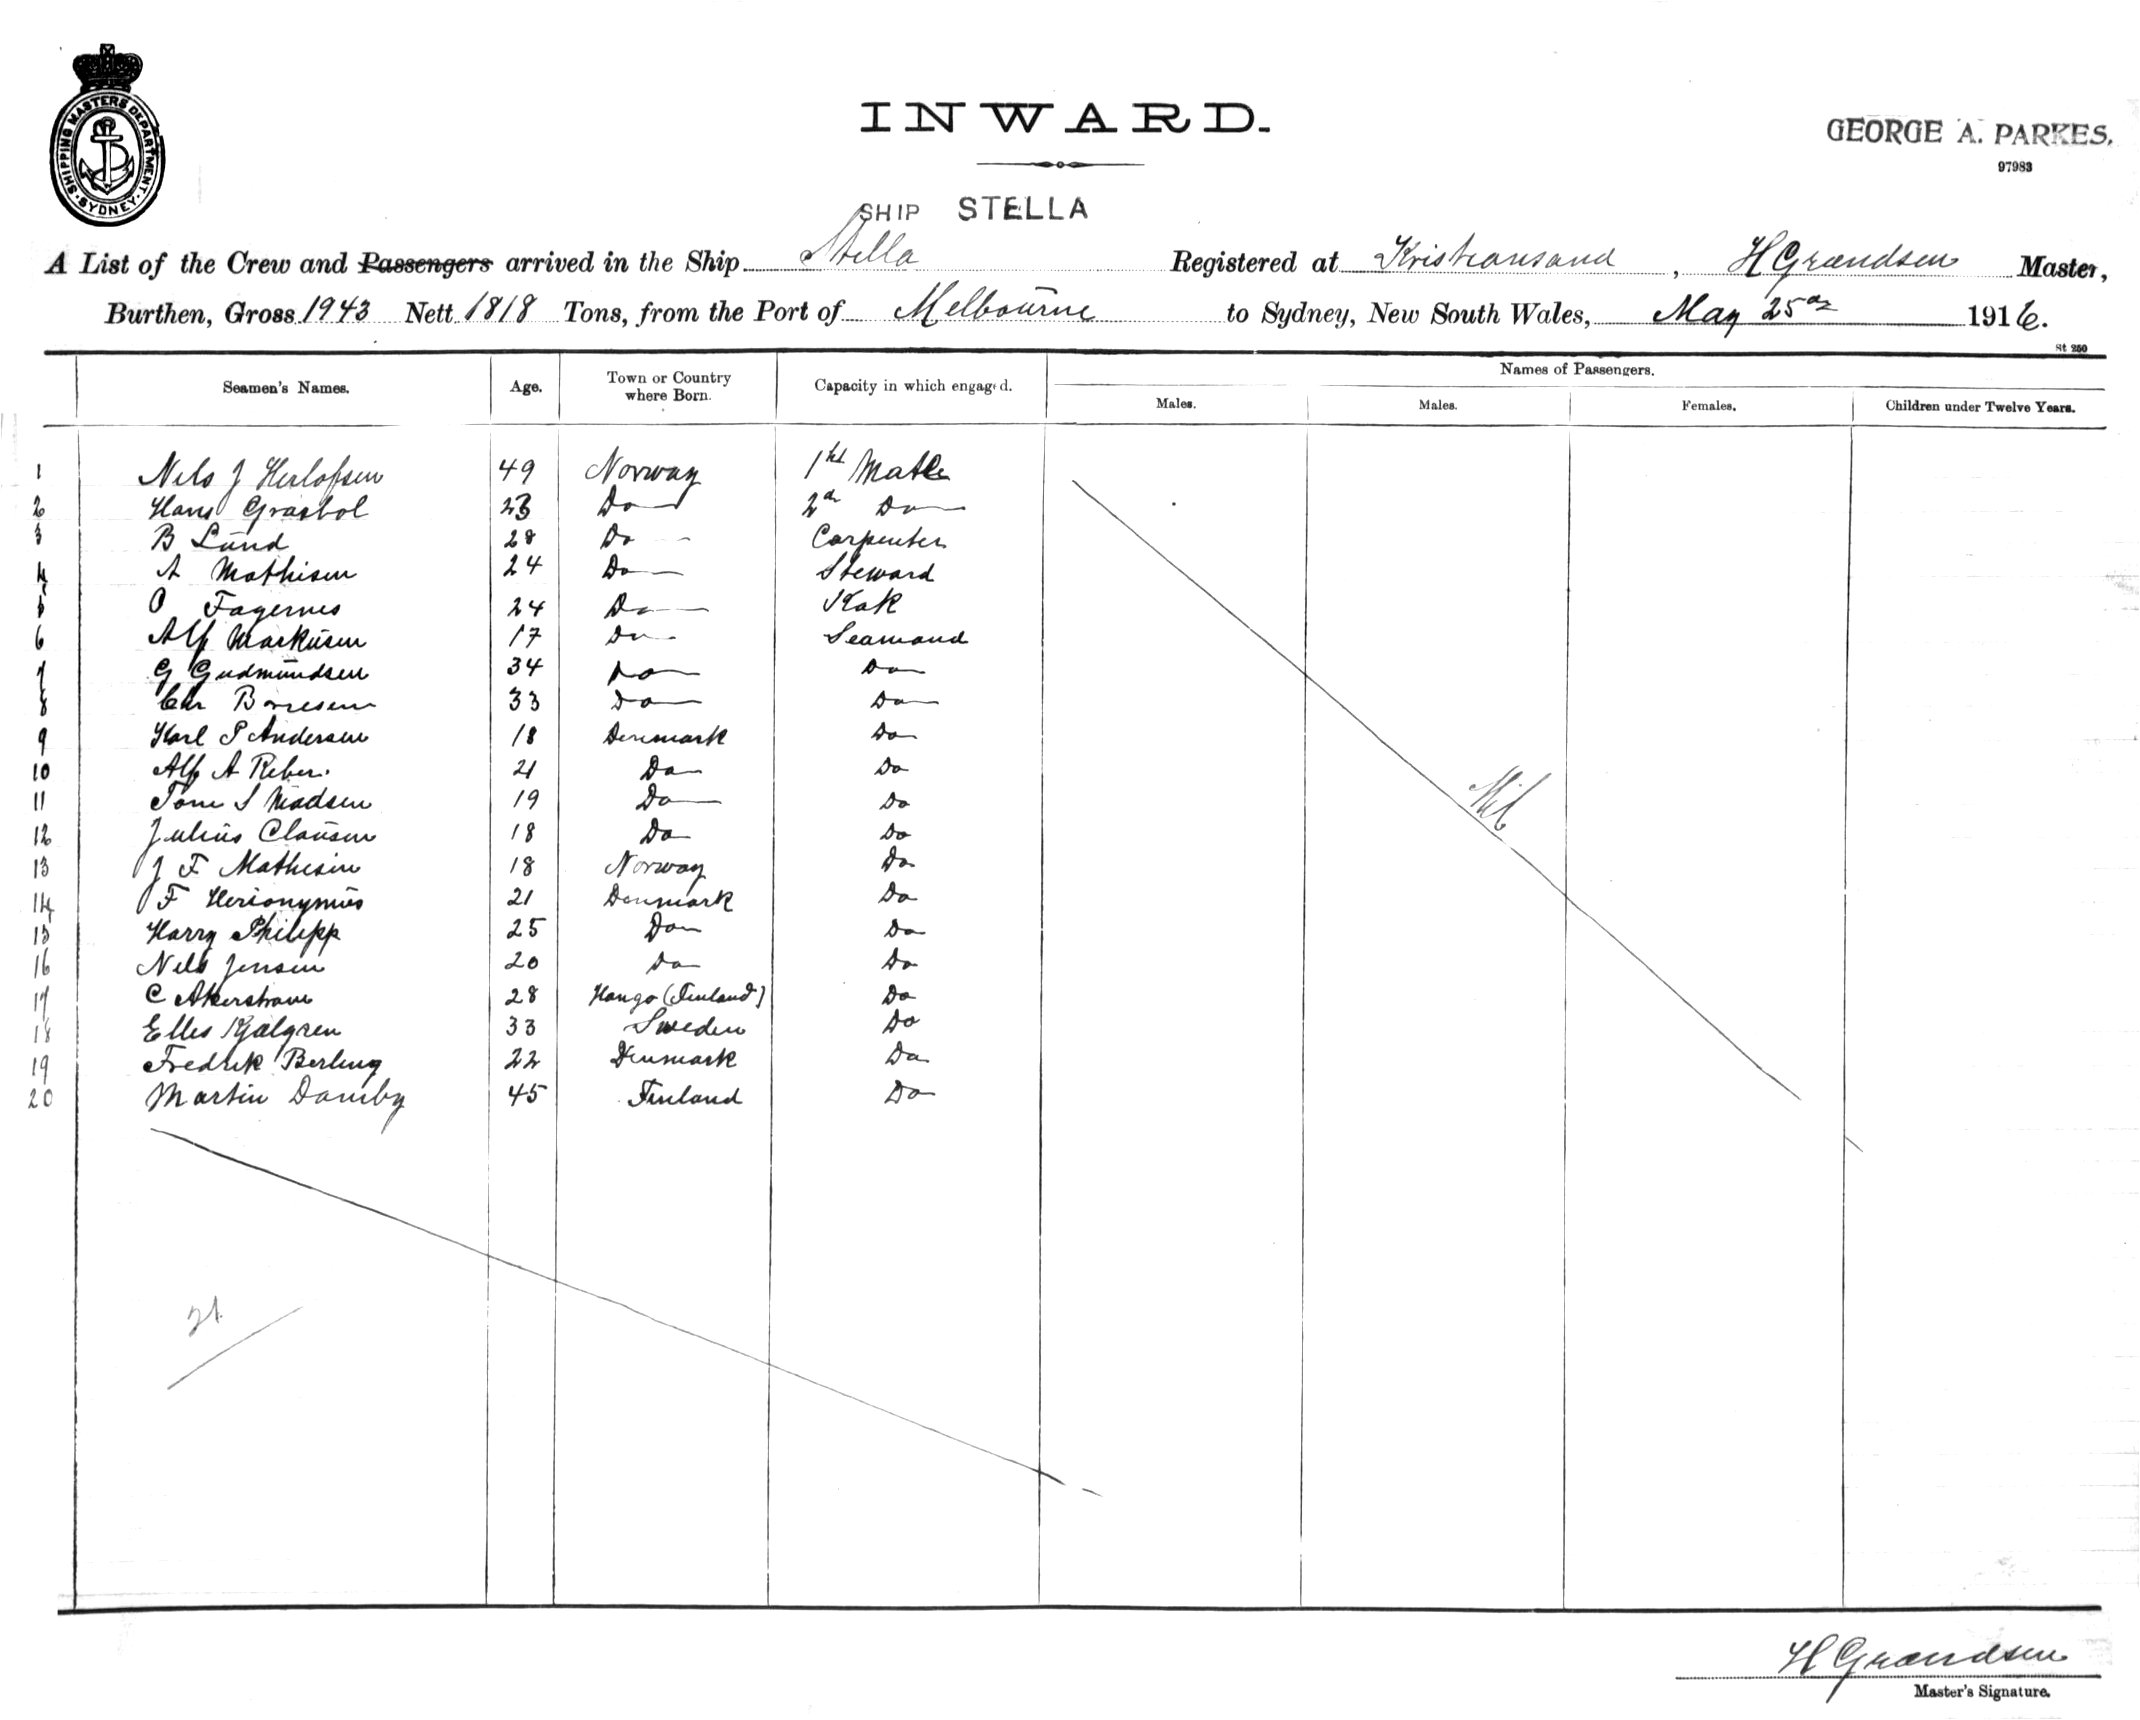 SHIPPING MASTERS DEPARTMENT · SYDNEY ·
INWARD.
GEORGE A. PARKES.
97983
SHIP STELLA
A List of the Crew and Passengers arrived in the Ship Stella Registered at Kristiansand, H Grændsen Master,
Burthen, Gross 1943 Nett 1818 Tons, from the Port of Melbourne to Sydney, New South Wales, May 25 1916.
St 250
Seamen's Names. Age. Town or Country where Born. Capacity in which engaged. Names of Passengers.
Males. Males. Females. Children under Twelve Years.
1 Nils J Herlofsen 49 Norway 1st Mate
2 Hans Grasbol 23 Do 2d Do
3 B Lund 28 Do Carpenter
4 A Mathisen 24 Do Steward
5 O Fagernes 24 Do Kok
6 Alf Markusen 17 Do Seamand
7 G Gudmundsen 34 Do Do
8 Chr Borresen 33 Do Do
9 Karl P Andersen 18 Denmark Do
10 Alf A Reber. 21 Do Do
11 Tom S Madsen 19 Do Do
12 Julius Clausen 18 Do Do
13 J F Mathesin 18 Norway Do
14 F Herionymus 21 Denmark Do
15 Harry Philipp 25 Do Do
16 Nils Jensen 20 Do Do
17 C Akerstrom 28 Hango (Finland) Do
18 Elles Kjælgren 33 Sweden Do
19 Fredrik Berling 22 Denmark Do
20 Martin Damby 45 Finland Do
Nil
21
H Grændsen
Master's Signature.